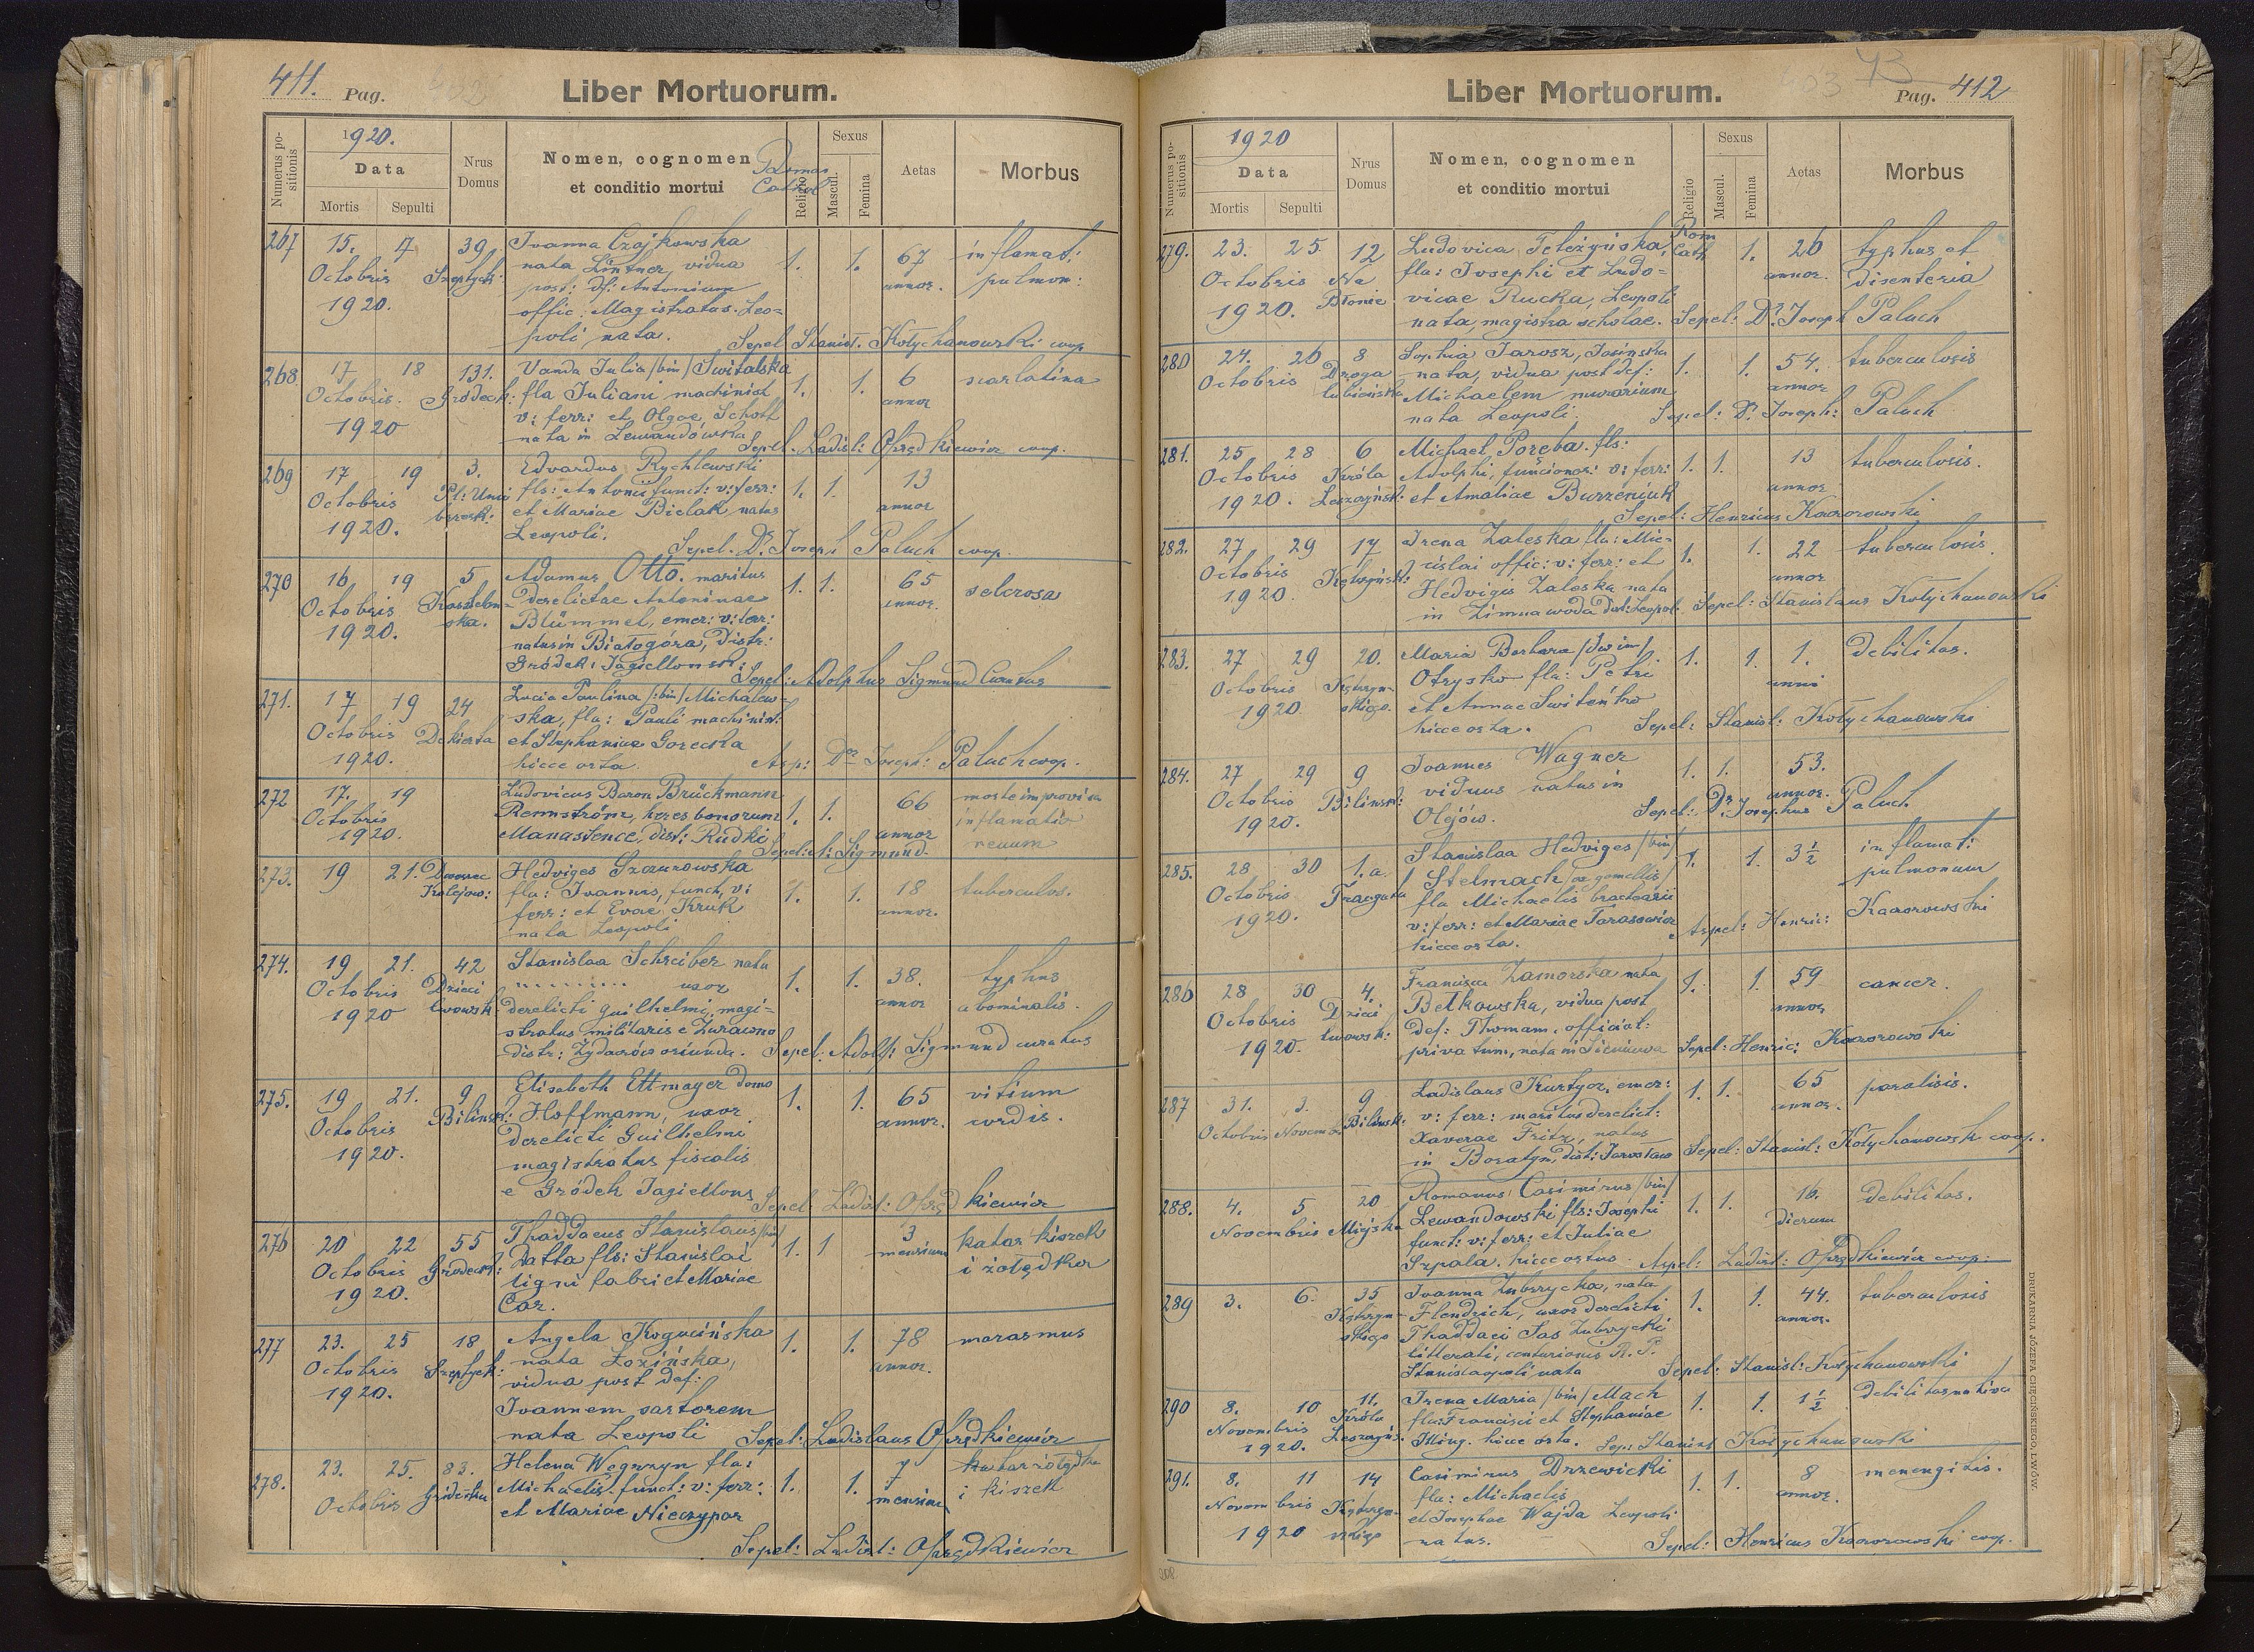 411. Pag.
Liber Mortuorum.
Numerus positionis
1920.
Data
Mortis
Sepulti
Nrus Domus
Nomen, cognomen
et conditio mortui
Religio
Sexus
Mascul.
Femina
Aetas
Morbus
267 15. 17 39 Joanna Czajkowska 1. 1. 67 inflamat:
Octobris Szeptyck: nata Lintner, vidua annor. pulmon:
1920. post: df: Antonium
offic: Magistratus. Leo=
poli nata. Sepel Stanisł. Kotychanowski coop
268 17 18 131. Vanda Julia /bin/ Switalska 1. 1. 6 scarlatina
Octobris. Gródeck: fla Juliani machinist annor
1920 v: ferr: et Olgae Schott
nata in Lewandówka Sepel. Ladisl: Oprządkiewicz coop.
269 17 19 3. Edvardus Rychlewski 1. 1. 13
Octobris Pl: Unii fls: Antonii funct: v: ferr: annor
1920. brzesk: et Mariae Bielak natus
Leopoli. Sepel. Dr. Joseph Paluch coop.
270 16 19 5 Adamus Otto. maritus 1. 1. 65 selcrosa
Octobris derelictae Antoninae annor.
1920. ska. Blümmel, emer: v: ferr:
natus in Białogóra, Distr:
Gródek Jagiellonsk: Sepel: Adolphus Sigmund Curatus
271. 17 19 24 Lucia Paulina /:bin/ Michalew=
Octobris Dekierta ska, fla: Pauli machinist:
1920. et Stephaniae Gorecka
hicce orta. Asp: Dr Joseph: Paluch coop.
272 17. 19 Ludovicus Baron Brückmann 1. 1. 66 morte improvisa
Octobris Rennström, heres bonorum annor inflamatio
1920. Manasterce, dist: Rudki Sepel: A: Sigmund. renum
273. 19 21. Dworzec Hedviges Szaurowska 1. 1. 18 tuberculos.
Kolejow: fla: Joannis, funct, v: annor.
ferr: et Evae Kruk
nata Leopoli
274. 19 21. 42 Stanislaa Schreiber nata 1. 1. 38. typhus
Octobris Dzieci uxor annor abominalis.
1920 lwowsk: derelicti Guilhelmi, magi=
stratus militaris e Zurawno
distr: Żydaczów oriunda. Sepel: Adolf: Sigmund curatus
275. 19 21. 9 Elisabeth Ettmayer domo 1. 1. 65 vitium
Octobris Bilinsk: Hoffmann, uxor annor. cordis.
1920. derelicti Guilhelmi
magistratus fiscalis
e Gródek Jagiellons Sepel Ladisl: Oprządkiewicz
276 20 22 55 Thaddaeus Stanislaus /bin/ 1. 1 3 katar kiszek
Octobris Gródeck: Datta fls: Stanislai mensium i żołądka
1920. ligni fabri et Mariae
Car.
277 23. 25 18 Angela Kogucińska 1. 1. 78 marasmus
Octobris Szeptyck: nata Łozińska, annor.
1920. vidua post def:
Joannem sartorem
nata Leopoli Sepel: Ladislaus Oprządkiewicz
278. 23. 25. 83. Helena Węgrzyn fla: 1. 1. 7 katar żołądka
Octobris Gródecka Michaelis. funct: v: ferr: mensium i kiszek
et Mariae Nieczypor
Sepel: Ladisl: Oprządkiewicz
Liber Mortuorum.
Pag. 412
Numerus positionis
1920
Data
Mortis
Sepulti
Nrus Domus
Nomen, cognomen
et conditio mortui
Religio
Sexus
Mascul.
Femina
Aetas
Morbus
279. 23. 25 12 Ludovica Teleżyńska, Rom Cath 1. 26 typhus et
Octobris Na fla: Josephi et Ludo= annor. disenteria
1920. Błonie vicae Rucka, Leopoli
nata, magistra scholae. Sepel: Dr. Joseph Paluch
280 24. 26 8 Sophia Jarosz, Jasinska 1. 1. 54. tuberculosis
Octobris Droga nata, vidua post def: annor
lubieńska Michaelem murarium
nata Leopoli. Sepel: Dr. Joseph: Paluch
281. 25 28 6 Michael Poręba. fls: 1. 1. 13 tuberculosis.
Octobris Króla Adolphi, funcionar: v: ferr: annor
1920. Leszczyńsk: et Amaliae Burzeniuk
Sepel: Henricus Kaczorowski
282. 27 29 17 Irena Zaleska fla: Mie= 1. 1. 22 tuberculosis.
Octobris Kętrzyńsk: cislai offic: v: ferr: et annor
1920. Hedvigis Zaleska nata
in Zimnawoda Dist: Leopol. Sepel: Stanislaus Kotychanowski
283. 27 29 20. Maria Barbara Otrysko fla: Petri 1. 1. 1. Debilitas.
Octobris Kętrzyn= anni
1920. skiego. et Annae Switeńko
hicce orta. Sepel: Stanisl: Kotychanowski
284. 27 29 9 Joannes Wagner 1. 1. 53.
Octobris Bilinsk: viduus natus in annor.
1920. Olejów. Sepel: Dr. Josephus Paluch
285. 28 30 1.a. Stanislaa Hedviges /bin/ 1. 1. 3½ inflamat:
Octobris Fraeguta Stelmach /ex gemellis/ pulmonum
1920. fla Michaelis
v: ferr: et Mariae Tarasowicz
hicce orta. Aspel: Henric: Kaczorowski
286 28 30 4. Francisca Zamorska nata 1. 1. 59 cancer.
Octobris Dzieci Bełkowska, vidua post annor
1920. lwowsk: def: Thomam, official:
privatum, nata in Sieniawa Sepel: Henric: Kaczorowski
287 31. 3. 9 Ladislaus Kustycz, emer: 1. 1. 65 paralisis.
Octobris Novembr Bilinsk: v: ferr: maritus derelict: annor.
Xaverae Fritz, natus
in Boratyn, dist: Jarosław Sepel: Stanisl: Kotychanowski coop.
288. 4. 5 20 Romanus Casimirus /bin/ 1. 1. 16. Debilitas.
Novembris Miejska Lewandowski fls: Josephi dierum
funct: v: ferr: et Juliae
Szpala. hicce ortus. Aspel: Ladisl: Oprządkiewicz coop.
289 3. 6. 35 Joanna Zubrzycka, nata 1. 1. 44. tuberculosis
Kętrzyn= Flendrich, uxor derelicti annor.
skiego Thaddaei Sas Zubrzycki
litterati, centurionis R. P.
Stanislaopoli nata Sepel: Stanisl: Kotychanowski
290 8. 10 11. Irena Maria /bin/ Mach 1. 1. 1½ debilitas nativa
Novembris Króla fla: Francisci et Stephaniae
1920. Leszczyńs. Illing. hicce orta. Sep: Stanisl Kotychanowski
291. 8. 11 14 Casimirus Drzewicki 1. 1. 8 menengitis.
Novembris Kętrzyn= fls: Michaelis annor.
1920 skiego et Josephae Wajda Leopoli
natus. Sepel: Henricus Kaczorowski coop.
DRUKARNIA JÓZEFA CHĘCIŃSKIEGO, LWÓW.